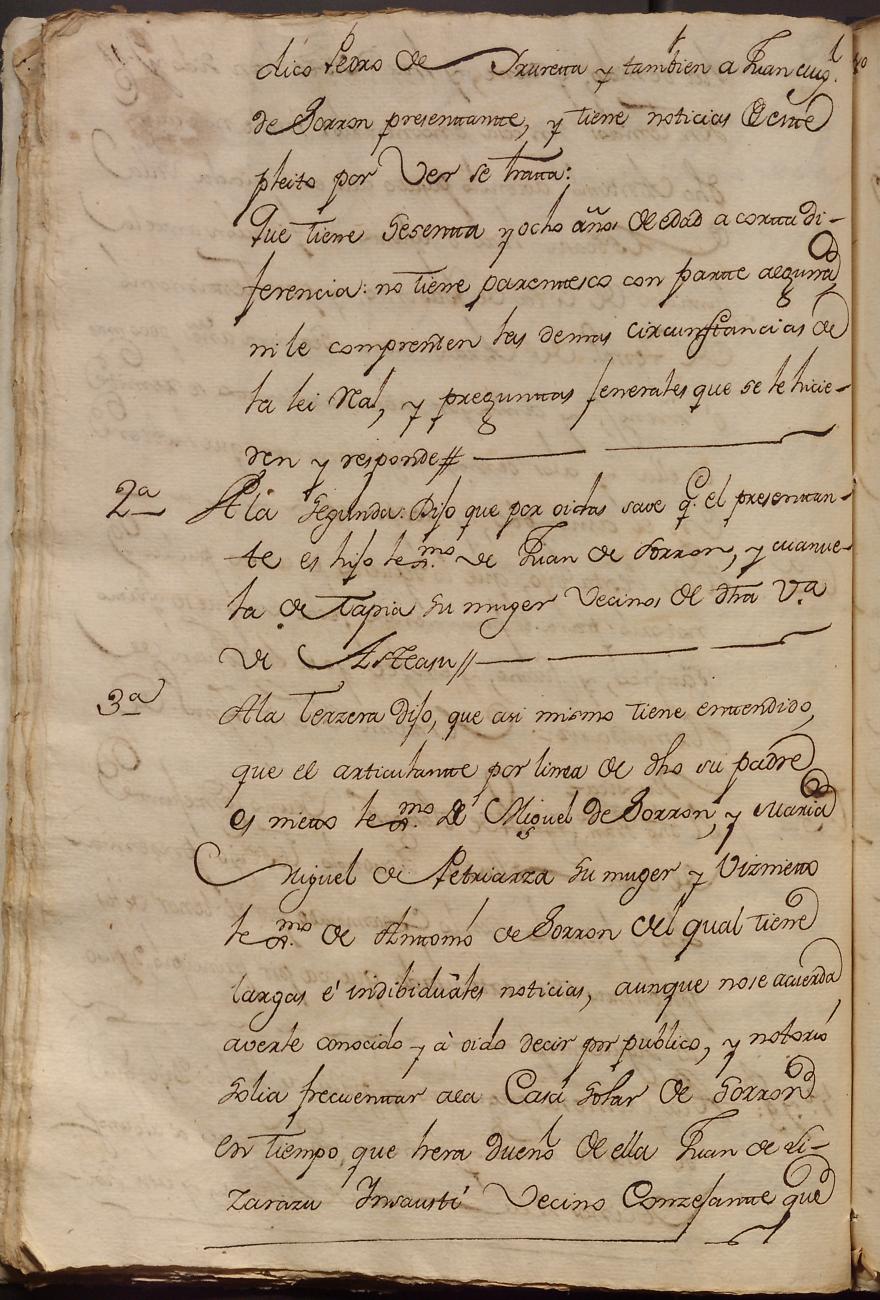 dico Pedro de Irureta y tambien a Juan Migl.
de Sorron presentante, y tiene noticias de este
pleito por Ver se trata:
Que tiene Sesenta y ocho años de edad a corta di-
ferencia: no tiene parentesco con parte alguna
ni le comprenden las demas circunstancias de
la lei Rl, y preguntas Jenerales que se le hicie-
ren y responde#
2a Ala Segunda: Dijo que por oidas save q.e el presentan-
te es hijo lexmo. de Juan de Sorron, y
la de Tapia Su muger Vecinos de dha Va.
de Asteasu//
3a Ala Terzera Dijo, que asi mismo tiene entendido,
que el articulante por linea de dho su padre
es nieto lexmo. de Miguel de Sorron, y Maria
Miguel de Petriarza Su muger y Viznieto
lexmo. de Antonio de Sorron del qual tiene
largas é indibiduales noticias, aunque no se acuerda
averle conocido y à oido decir por publico, y notorio
Solia frecuentar ala Casa Solar de Sorron
en tiempo que hera dueño de ella Juan de Li-
zarazu Insausti Vecino Conzejante que